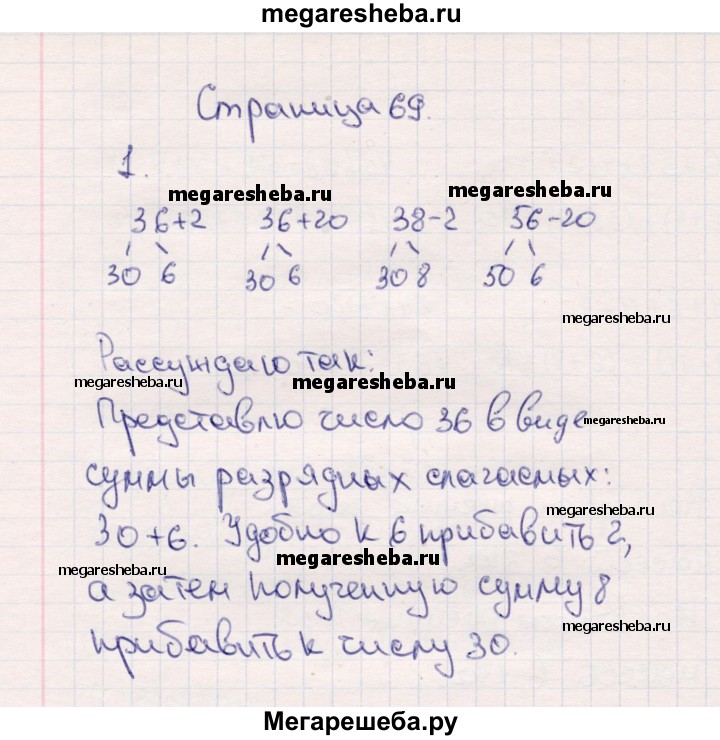 megaresheba.ru
Страница 69.
1.
megaresheba.ru megaresheba.ru
36+2 36+20 38-2 56-20
30 6 30 6 30 8 50 6
megaresheba.ru
Рассуждаю так:
megaresheba.ru megaresheba.ru
Представлю число 36 в виде megaresheba.ru
суммы разрядных слагаемых:
30+6. Удобно к 6 прибавить 2,
megaresheba.ru megaresheba.ru
а затем полученную сумму 8
megaresheba.ru
прибавить к числу 30.
Мегарешеба.ру